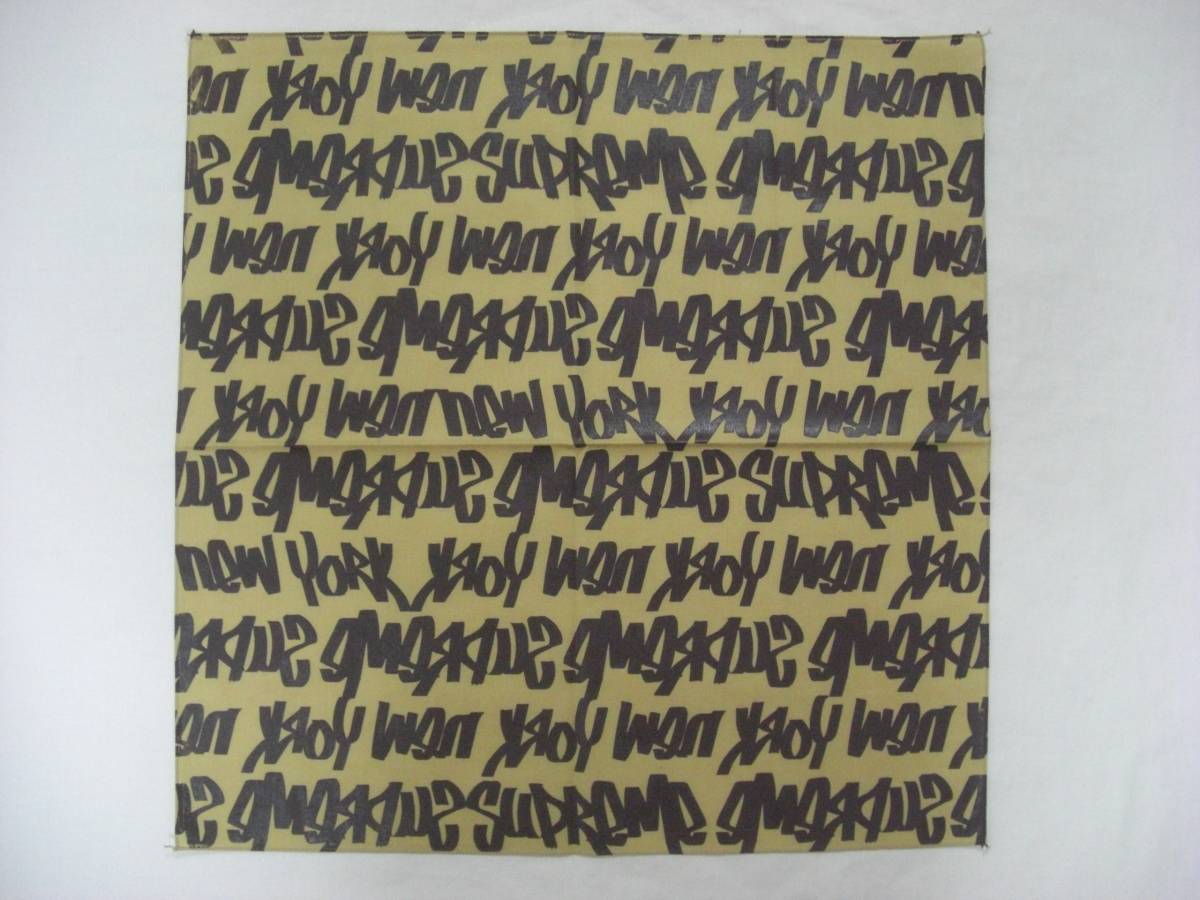 YORK new YORK new YORK new
SUPReme SUPReme SUPReme
new YORK new YORK new YORK
SUPReme SUPReme
YORK new new YORK YORK new
SUPReme SUPReme SUPReme
new YORK YORK new YORK new
SUPReme SUPReme
YORK new YORK new YORK new
SUPReme SUPReme SUPReme